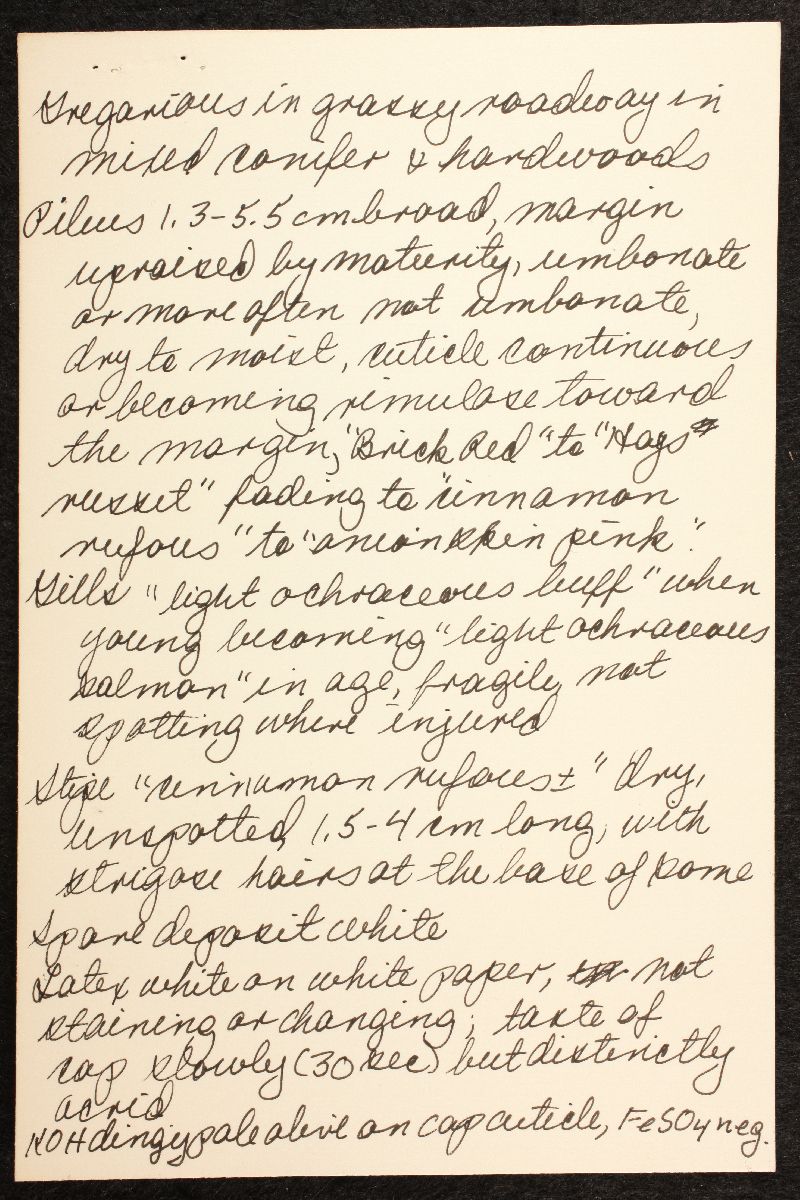 Gregarious in grassy roadway in
mixed conifer & hardwoods
Pileus 1.3-5.5 cm broad, margin
upraised by maturity, umbonate
or more often not umbonate,
dry to moist, cuticle continuous
or becoming rimulose toward
the margin, "Brick Red" to "Hays
russet" fading to "cinnamon
rufous" to "onionskin pink".
Gills "light ochraceous buff" when
young becoming "light ochraceous
salmon" in age, fragile, not
spotting where injured
Stipe "cinnamon rufous±" dry,
unspotted, 1.5-4 cm long, with
strigose hairs at the base of some
Spore deposit white
Latex white on white paper, not
staining or changing; taste of
cap slowly (30 sec) but distinctly
acrid
KOH dingy pale olive on cap cuticle, FeSO4 neg.